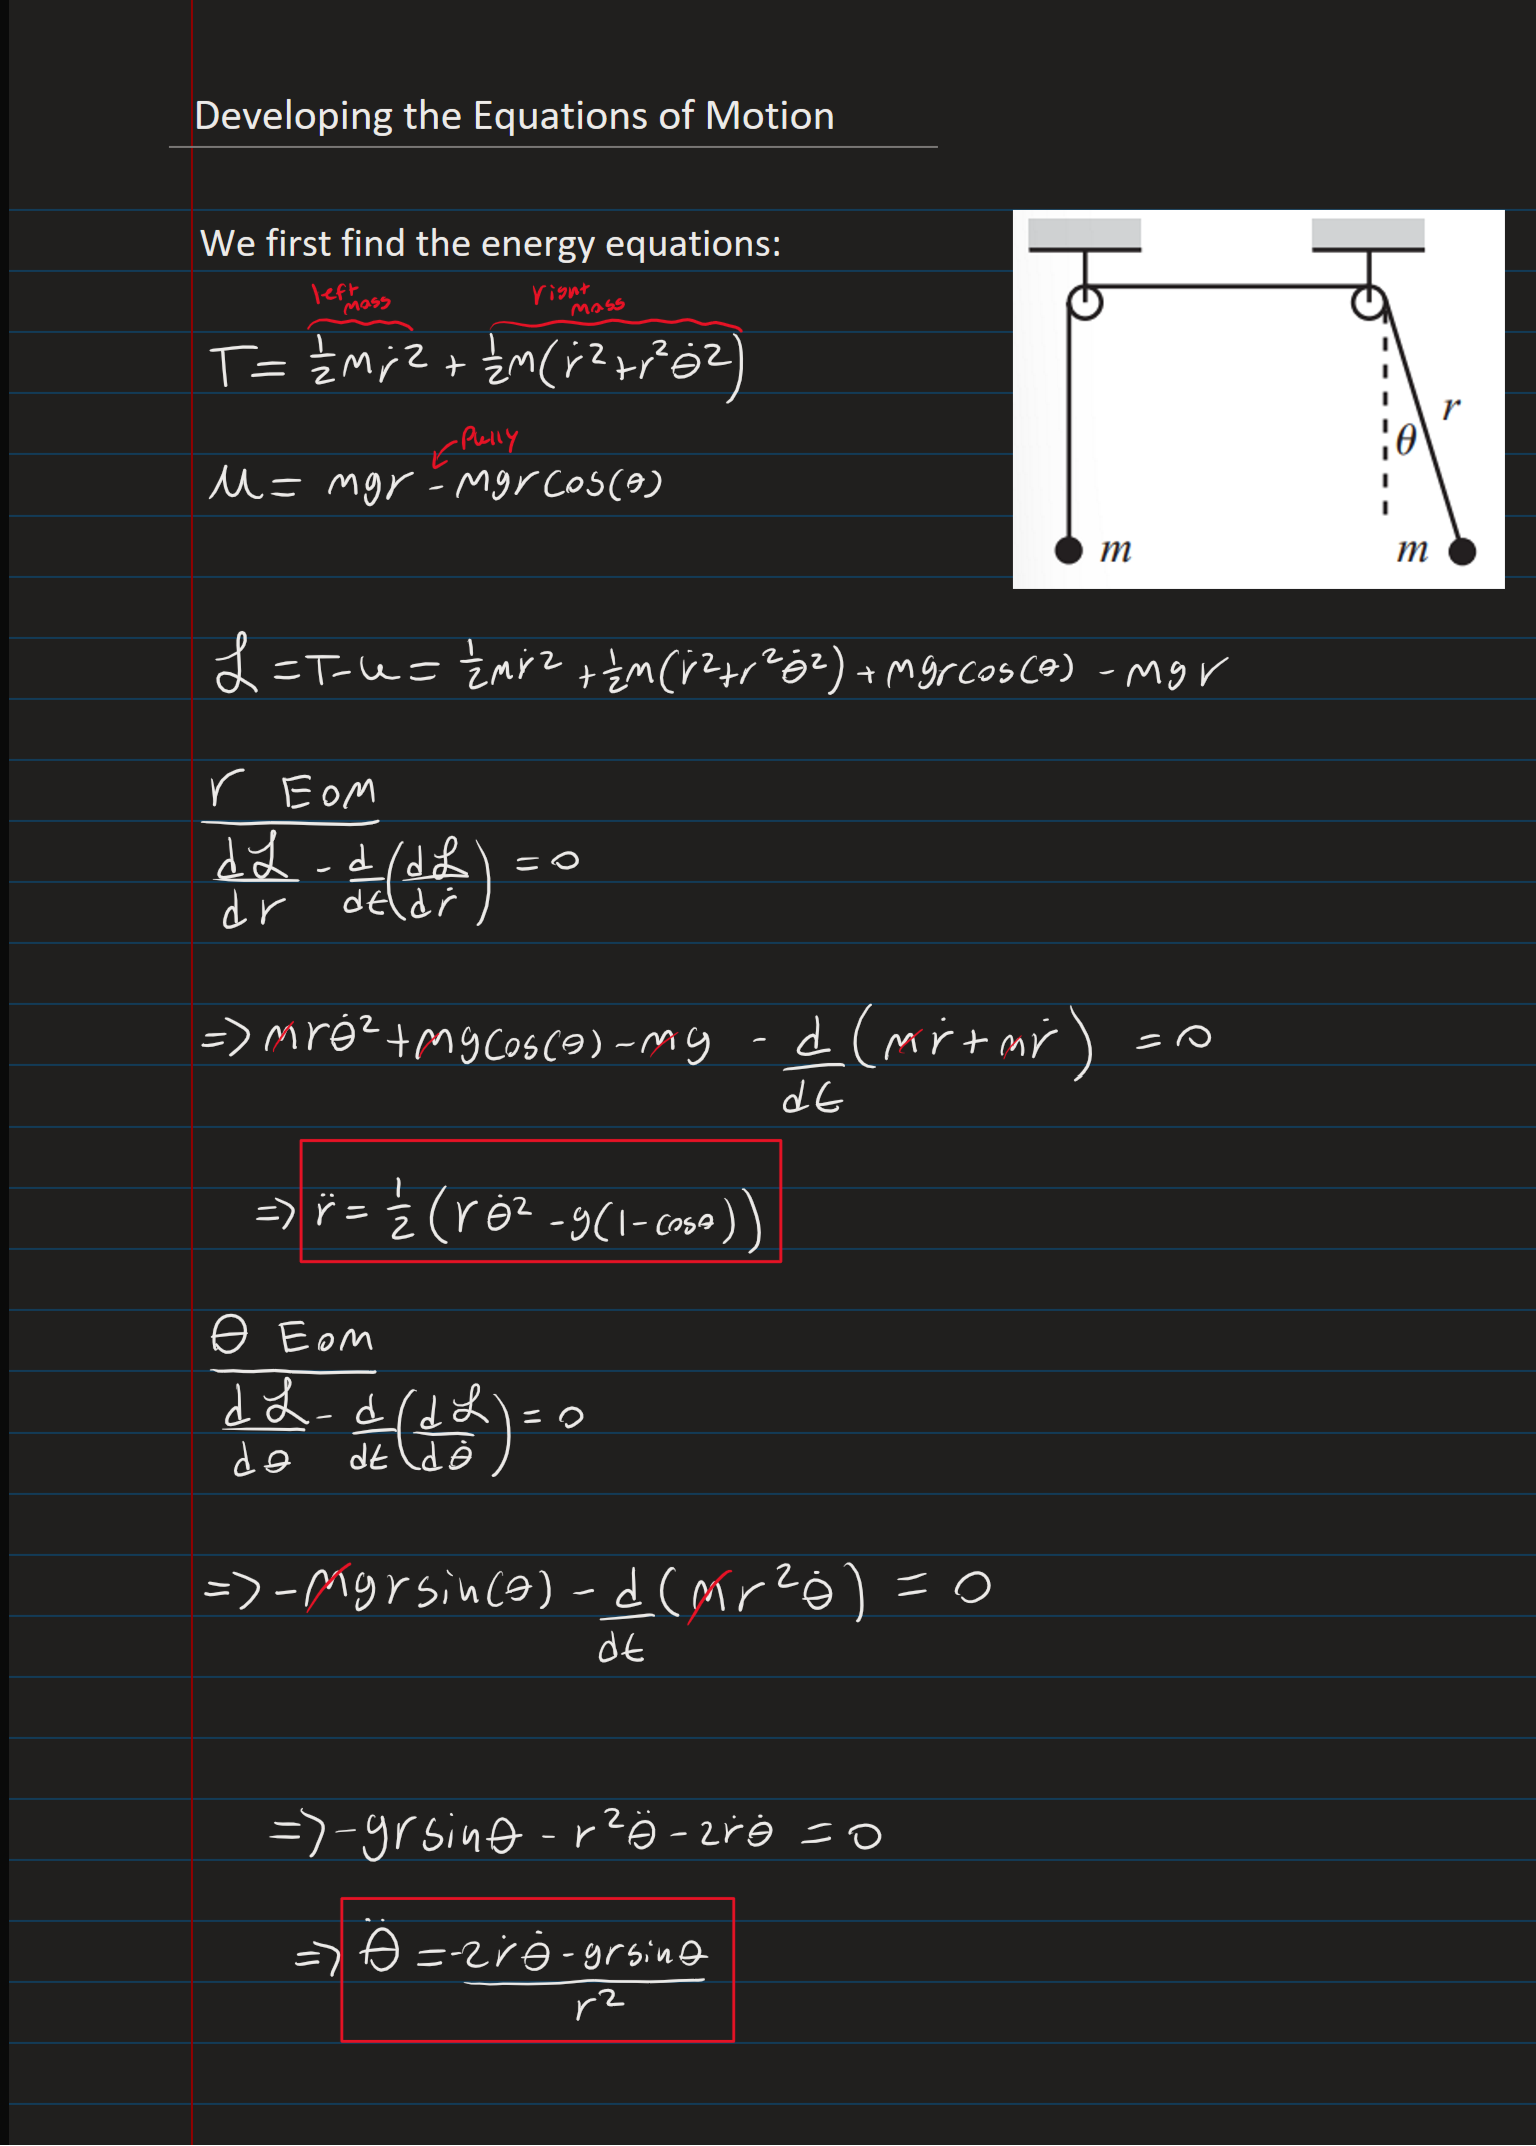 Developing the Equations of Motion
We first find the energy equations:
left mass right mass
T = 1/2 mṙ² + 1/2 m(ṙ² + r²θ̇²)
pully
U = mgr - mgr cos(θ)
r
θ
m m
ℒ = T - U = 1/2 mṙ² + 1/2 m(ṙ² + r²θ̇²) + mgr cos(θ) - mgr
r EOM
dℒ/dr - d/dt(dℒ/dṙ) = 0
=> mrθ̇² + mg cos(θ) - mg - d/dt(mṙ + mṙ) = 0
=> r̈ = 1/2 (rθ̇² - g(1 - cosθ))
θ EOM
dℒ/dθ - d/dt(dℒ/dθ̇) = 0
=> -mgr sin(θ) - d/dt(mr²θ̇) = 0
=> -gr sinθ - r²θ̈ - 2ṙθ̇ = 0
=> θ̈ = (-2ṙθ̇ - gr sinθ)/r²